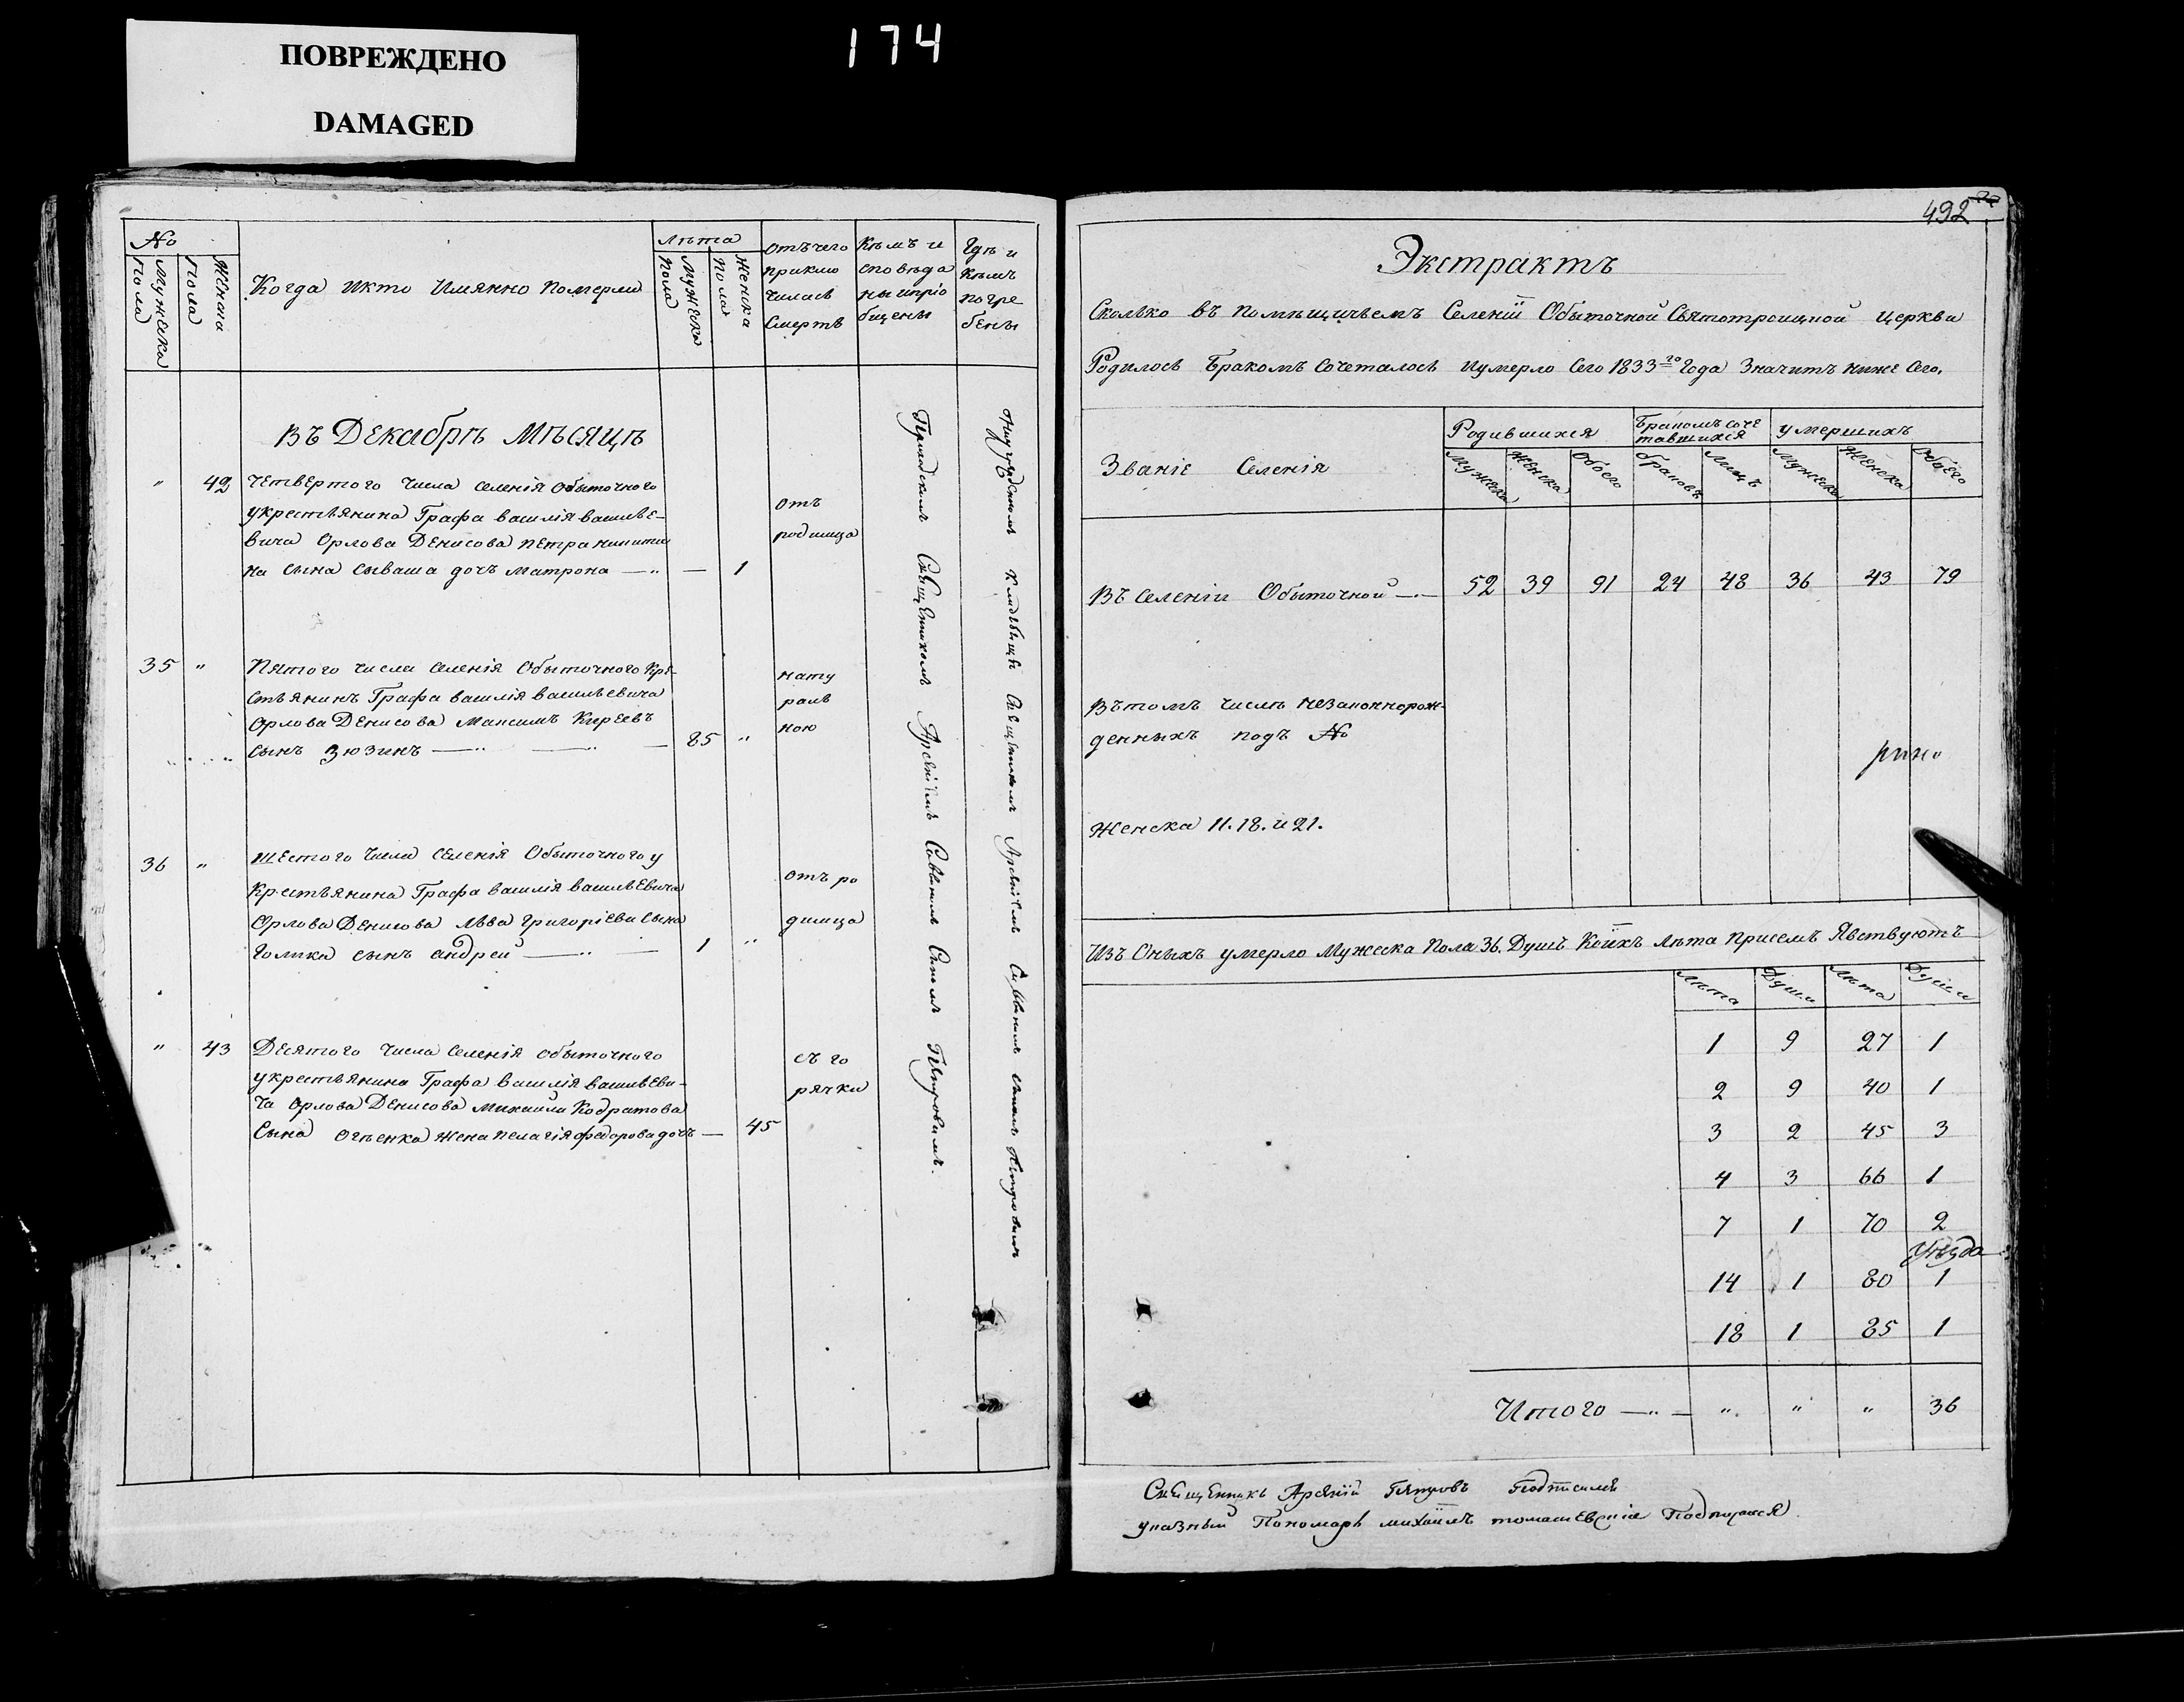 ПОВРЕЖДЕНО
DAMAGED
174
No
Мужеска Пола
Женска Пола
Когда Икто Имянно Померли
Лѣта
Мужеска Пола
Женска Пола
Отъчего
приклю
чилась
Смерть
Кѣмъ и
сповѣда
ны ипріо
бщены
Гдѣ и
Кѣмъ
погре
бены
Въ Декабрѣ Мѣсяцѣ
" 42 Четвертого Числа селенія Обыточного
укрестьянина Графа василія василье-
вича Орлова Денисова петра никити
на сына сываша дочъ матрона — 1
отъ
родимца
35 " Пятого числа селенія Обыточного Кре-
стьянинъ Графа василія васильевича
Орлова Денисова Максимъ Киреевъ
сынъ Зюзинъ — 85 "
нату
раль
ною
36 " Шестого Числа селенія Обыточного у
Крестьянина Графа василія васильевича
Орлова Денисова Льва Григоріева сына
Голика сынъ андрей — 1 "
отъ ро
димца
" 43 Десятого Числа селенія обыточного
укрестьянина Графа василія василъеви-
ча Орлова Денисова михаила Кодратова
сына Огѣенка жена пелагія федорова дочъ — 45
съ го
рячки
Приходскимъ Священникомъ Арсеніемъ Савинымъ Сыномъ Петровымъ.
Священникомъ Арсеніемъ Савинымъ сыномъ Петровымъ
492
Экстрактъ
Сколько въ помѣщичьемъ Селеніи Обыточной Святотроицкой церкви
Родилось Бракомъ Сочеталось Иумерло Сего 1833го Года Значитъ ниже Сего.
Званіе Селенія
Родившихся
Бракомъ соче
тавшихся
умершихъ
Мужеска Женска Обоего браковъ Лицъ Мужеска Женска Обоего
Въ селеніи Обыточной — 52 39 91 24 48 36 43 79
Вътомъ числѣ незаконнорож-
денныхъ подъ No
Женска 11. 18. и 21.
Изъ Оныхъ умерло Мужеска Пола 36. Душъ Коихъ Лѣта присемъ Явствуютъ
Лѣта Души Лѣта Души
1 9 27 1
2 9 40 1
3 2 45 3
4 3 66 1
7 1 70 2
Уѣзда
14 1 80 1
18 1 85 1
Итого — " " " 36
Священникъ Арсеній Петровъ Подписалъ
указный Пономарь михаилъ томашевскій Подписался.